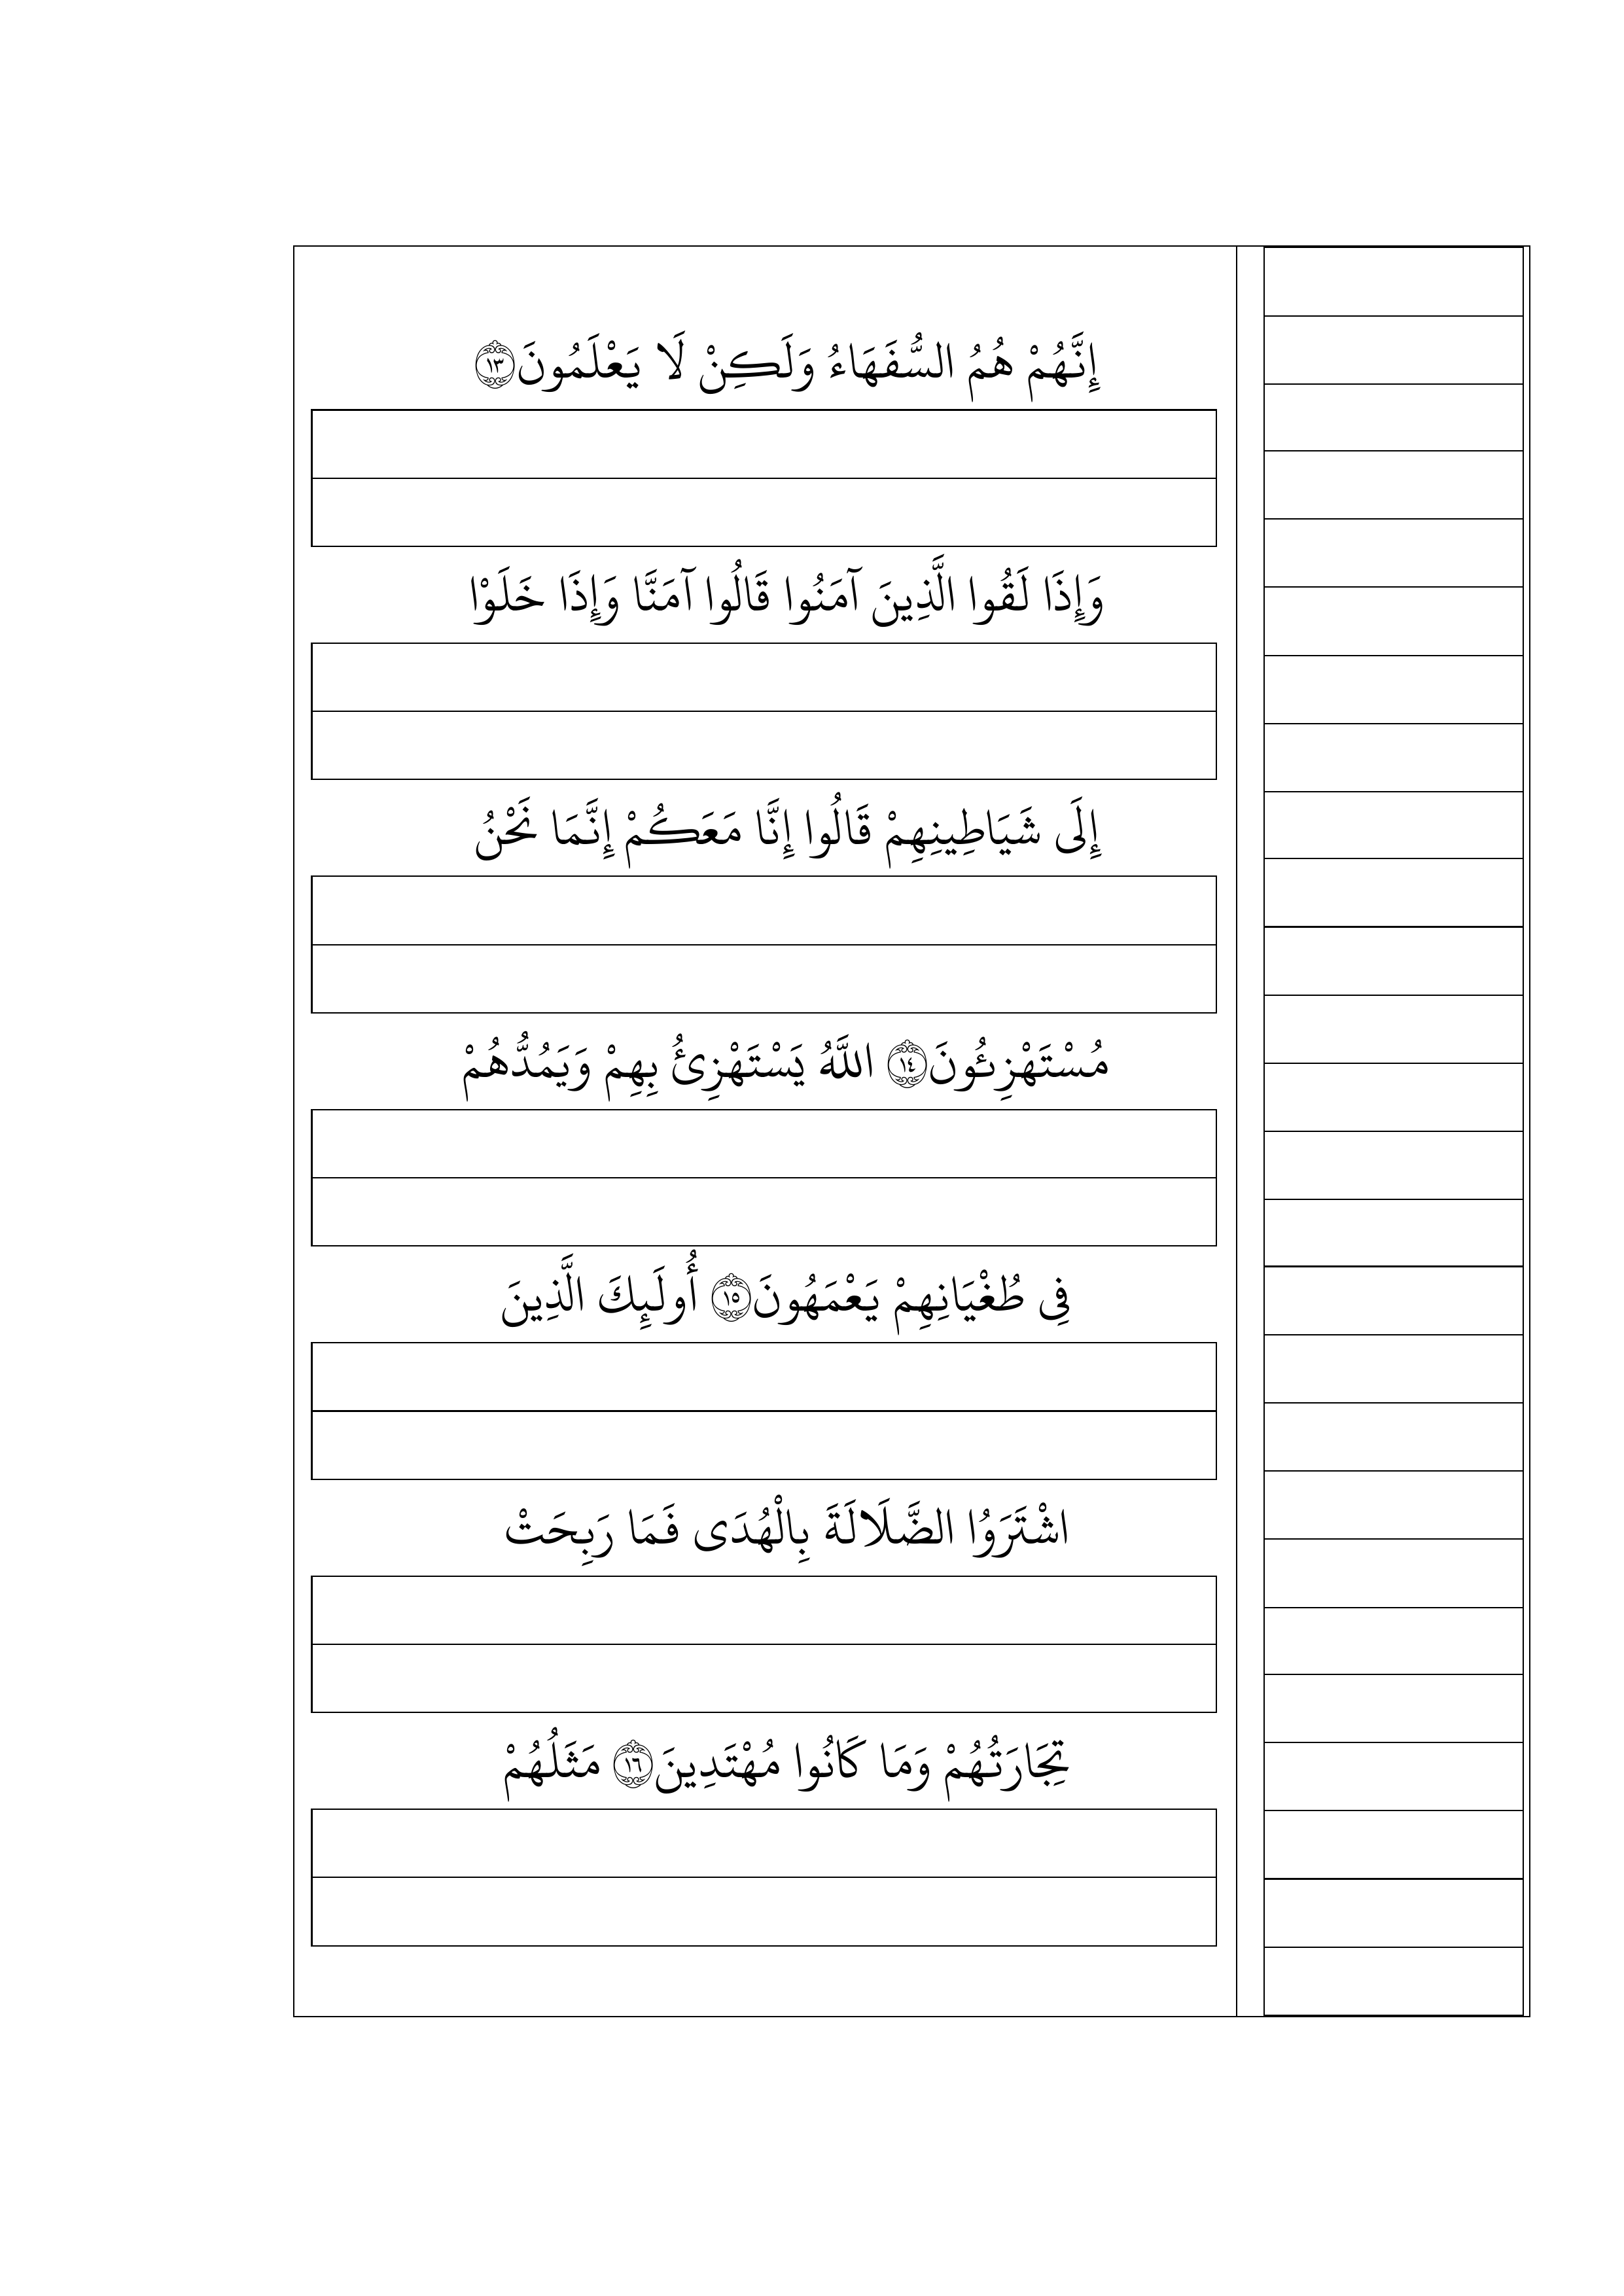 إِنَّهُمْ هُمُ السُّفَهَاءُ وَلَكِنْ لَا يَعْلَمُونَ ۝١٣
وَإِذَا لَقُوا الَّذِينَ آمَنُوا قَالُوا آمَنَّا وَإِذَا خَلَوْا
إِلَى شَيَاطِينِهِمْ قَالُوا إِنَّا مَعَكُمْ إِنَّمَا نَحْنُ
مُسْتَهْزِئُونَ ۝١٤ اللَّهُ يَسْتَهْزِئُ بِهِمْ وَيَمُدُّهُمْ
فِي طُغْيَانِهِمْ يَعْمَهُونَ ۝١٥ أُولَئِكَ الَّذِينَ
اشْتَرَوُا الضَّلَالَةَ بِالْهُدَى فَمَا رَبِحَتْ
تِجَارَتُهُمْ وَمَا كَانُوا مُهْتَدِينَ ۝١٦ مَثَلُهُمْ